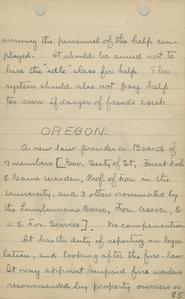 mining the personnel of the help em-
ployed. It should be aimed not to
hire the "idle" class for help. The
system should also not pay help
too soon if danger of frauds exist.
OREGON.
A new law provides a Board of
7 members [Gov, Secty of St, Forest, Fish
& Game Warden, Prof. of For. in the
University, and 3 others nominated by
the Lumbermans Assoc, For. Assoc, &
U.S. For. Service]. No compensation
It has the duty of reporting on legis-
lation, and looking after the fire-law
It may appoint unpaid fire wardens
recommended by property owners or
85